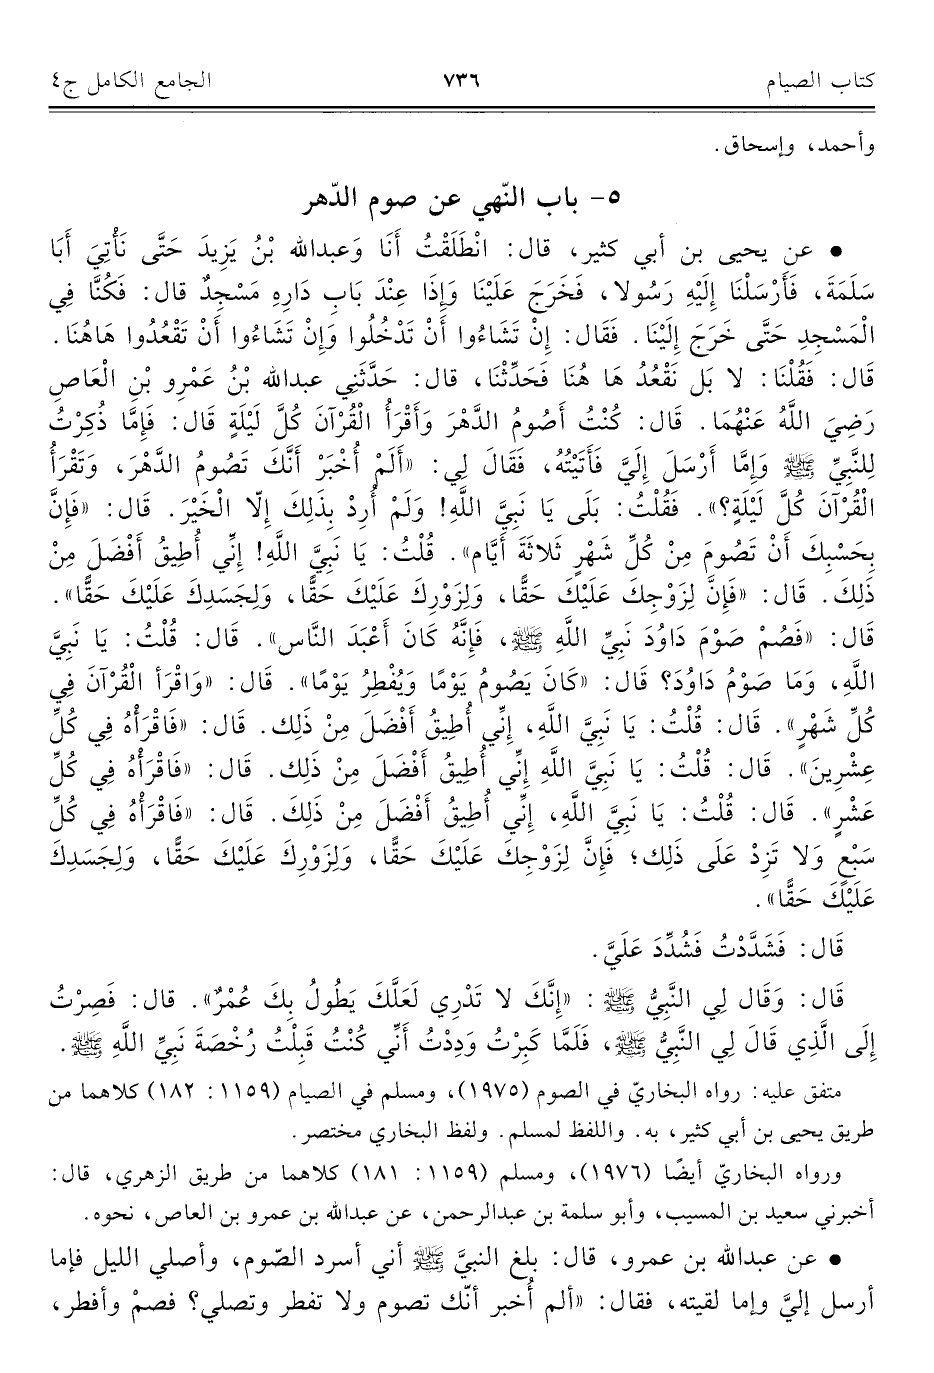 كتاب الصيام ٧٣٦ الجامع الكامل ج٤
وأحمد، وإسحاق.
٥- باب النّهي عن صوم الدّهر
• عن يحيى بن أبي كثير، قال: انْطَلَقْتُ أَنَا وَعبدالله بْنُ يَزِيدَ حَتَّى نَأْتِيَ أَبَا
سَلَمَةَ، فَأَرْسَلْنَا إِلَيْهِ رَسُولا، فَخَرَجَ عَلَيْنَا وَإِذَا عِنْدَ بَابِ دَارِهِ مَسْجِدٌ قال: فَكُنَّا فِي
الْمَسْجِدِ حَتَّى خَرَجَ إِلَيْنَا. فَقَال: إِنْ تَشَاءُوا أَنْ تَدْخُلُوا وَإِنْ تَشَاءُوا أَنْ تَقْعُدُوا هَاهُنَا.
قَال: فَقُلْنَا: لا بَل نَقْعُدُ هَا هُنَا فَحَدِّثْنَا، قال: حَدَّثَنِي عبدالله بْنُ عَمْرِو بْنِ الْعَاصِ
رَضِيَ اللَّهُ عَنْهُمَا. قَال: كُنْتُ أَصُومُ الدَّهْرَ وَأَقْرَأُ الْقُرْآنَ كُلَّ لَيْلَةٍ قَال: فَإِمَّا ذُكِرْتُ
لِلنَّبِيِّ ﷺ وَإِمَّا أَرْسَلَ إِلَيَّ فَأَتَيْتُهُ، فَقَالَ لِي: «أَلَمْ أُخْبَرْ أَنَّكَ تَصُومُ الدَّهْرَ، وَتَقْرَأُ
الْقُرْآنَ كُلَّ لَيْلَةٍ؟». فَقُلْتُ: بَلَى يَا نَبِيَّ اللَّهِ! وَلَمْ أُرِدْ بِذَلِكَ إِلّا الْخَيْرَ. قَال: «فَإِنَّ
بِحَسْبِكَ أَنْ تَصُومَ مِنْ كُلِّ شَهْرٍ ثَلاثَةَ أَيَّام». قُلْتُ: يَا نَبِيَّ اللَّهِ! إِنِّي أُطِيقُ أَفْضَلَ مِنْ
ذَلِكَ. قَال: «فَإِنَّ لِزَوْجِكَ عَلَيْكَ حَقًّا، وَلِزَوْرِكَ عَلَيْكَ حَقًّا، وَلِجَسَدِكَ عَلَيْكَ حَقًّا».
قَال: «فَصُمْ صَوْمَ دَاوُدَ نَبِيِّ اللَّهِ ﷺ، فَإِنَّهُ كَانَ أَعْبَدَ النَّاس». قَال: قُلْتُ: يَا نَبِيَّ
اللَّهِ، وَمَا صَوْمُ دَاوُدَ؟ قَال: «كَانَ يَصُومُ يَوْمًا وَيُفْطِرُ يَوْمًا». قَال: «وَاقْرَأ الْقُرْآنَ فِي
كُلِّ شَهْرٍ». قَال: قُلْتُ: يَا نَبِيَّ اللَّهِ، إِنِّي أُطِيقُ أَفْضَلَ مِنْ ذَلِك. قَال: «فَاقْرَأْهُ فِي كُلِّ
عِشْرِينَ». قَال: قُلْتُ: يَا نَبِيَّ اللَّهِ إِنِّي أُطِيقُ أَفْضَلَ مِنْ ذَلِك. قَال: «فَاقْرَأْهُ فِي كُلِّ
عَشْرٍ». قَال: قُلْتُ: يَا نَبِيَّ اللَّهِ، إِنِّي أُطِيقُ أَفْضَلَ مِنْ ذَلِكَ. قَال: «فَاقْرَأْهُ فِي كُلِّ
سَبْعٍ وَلا تَزِدْ عَلَى ذَلِك؛ فَإِنَّ لِزَوْجِكَ عَلَيْكَ حَقًّا، وَلِزَوْرِكَ عَلَيْكَ حَقًّا، وَلِجَسَدِكَ
عَلَيْكَ حَقًّا».
قَال: فَشَدَّدْتُ فَشُدِّدَ عَلَيَّ.
قَال: وَقَال لِي النَّبِيُّ ﷺ: «إِنَّكَ لا تَدْرِي لَعَلَّكَ يَطُولُ بِكَ عُمْرٌ». قال: فَصِرْتُ
إِلَى الَّذِي قَالَ لِي النَّبِيُّ ﷺ، فَلَمَّا كَبِرْتُ وَدِدْتُ أَنِّي كُنْتُ قَبِلْتُ رُخْصَةَ نَبِيِّ اللَّهِ ﷺ.
متفق عليه: رواه البخاريّ في الصوم (١٩٧٥)، ومسلم في الصيام (١١٥٩: ١٨٢) كلاهما من
طريق يحيى بن أبي كثير، به. واللفظ لمسلم. ولفظ البخاري مختصر.
ورواه البخاريّ أيضًا (١٩٧٦)، ومسلم (١١٥٩: ١٨١) كلاهما من طريق الزهري، قال:
أخبرني سعيد بن المسيب، وأبو سلمة بن عبدالرحمن، عن عبدالله بن عمرو بن العاص، نحوه.
• عن عبدالله بن عمرو، قال: بلغ النبيَّ ﷺ أني أسرد الصّوم، وأصلي الليل فإما
أرسل إليَّ وإما لقيته، فقال: «ألم أُخبر أنّك تصوم ولا تفطر وتصلي؟ فصمْ وأفطر،